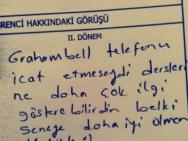 RENCİ HAKKINDAKİ GÖRÜŞÜ
II. DÖNEM
Grahambell telefonu
icat etmeseydi dersleri
ne daha çok ilgi
göstere bilirdin belki
Seneye daha iyi olman